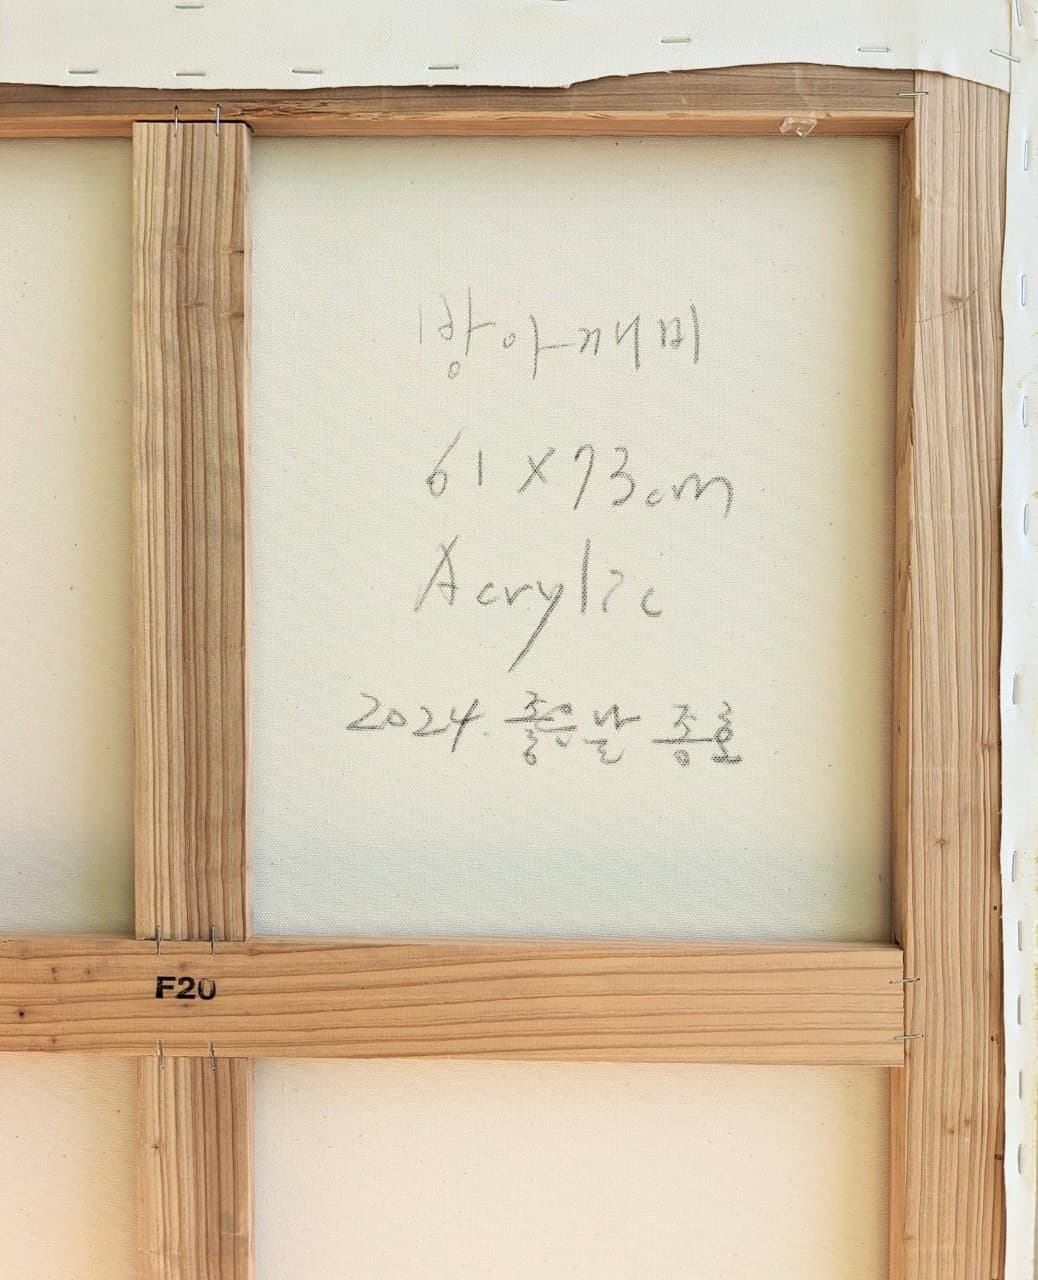 방아깨비
61 x 73cm
Acrylic
2024. 좋은날 종호
F20